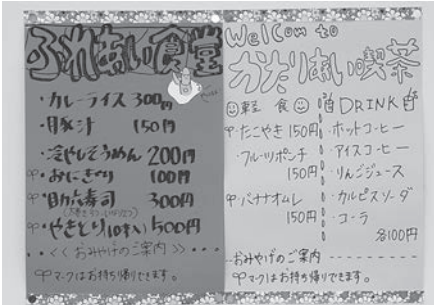 ふれあい食堂
・カレーライス 300円
・豚汁 150円
・冷やしそうめん 200円
・おにぎり 100円
・助六寿司 300円
・やきとり(10本入) 500円
・・<<おみやげのご案内>>・・・
マークはお持ち帰りできます。
WelCom to
かたりあい喫茶
軽食
・たこやき 150円
・フルーツポンチ
150円
・バナナオムレ
150円
DRINK
・ホットコーヒー
・アイスコーヒー
・りんごジュース
・カルピスソーダ
・コーラ
各100円
--おみやげのご案内----------
マークはお持ち帰りできます。